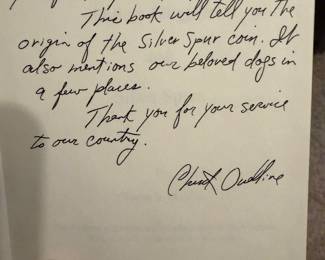 This book will tell you the
origin of the Silver Spur coin. It
also mentions our beloved dogs in
a few places.
Thank you for your service
to our country.
Chuck